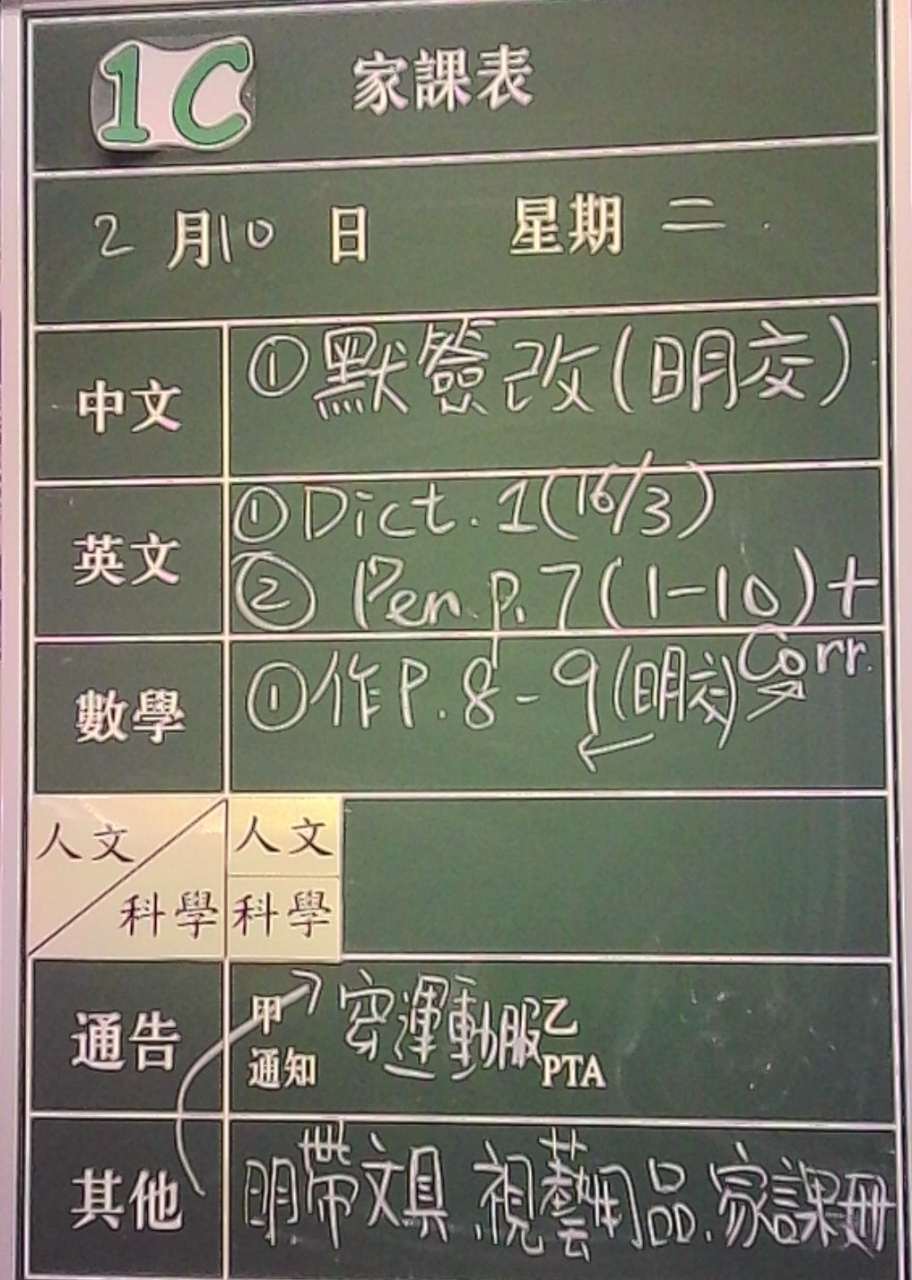 1C 家課表
2月10日 星期二.
中文 ①默簽改(明交)
英文 ①Dict. 1(16/3)
② Pen. p.7(1-10)+
Corr.
數學 ①作P.8-9(明交)
人文 人文
科學 科學
通告 甲 穿運動服 乙
通知 PTA
其他 明帶文具、視藝用品、家課冊